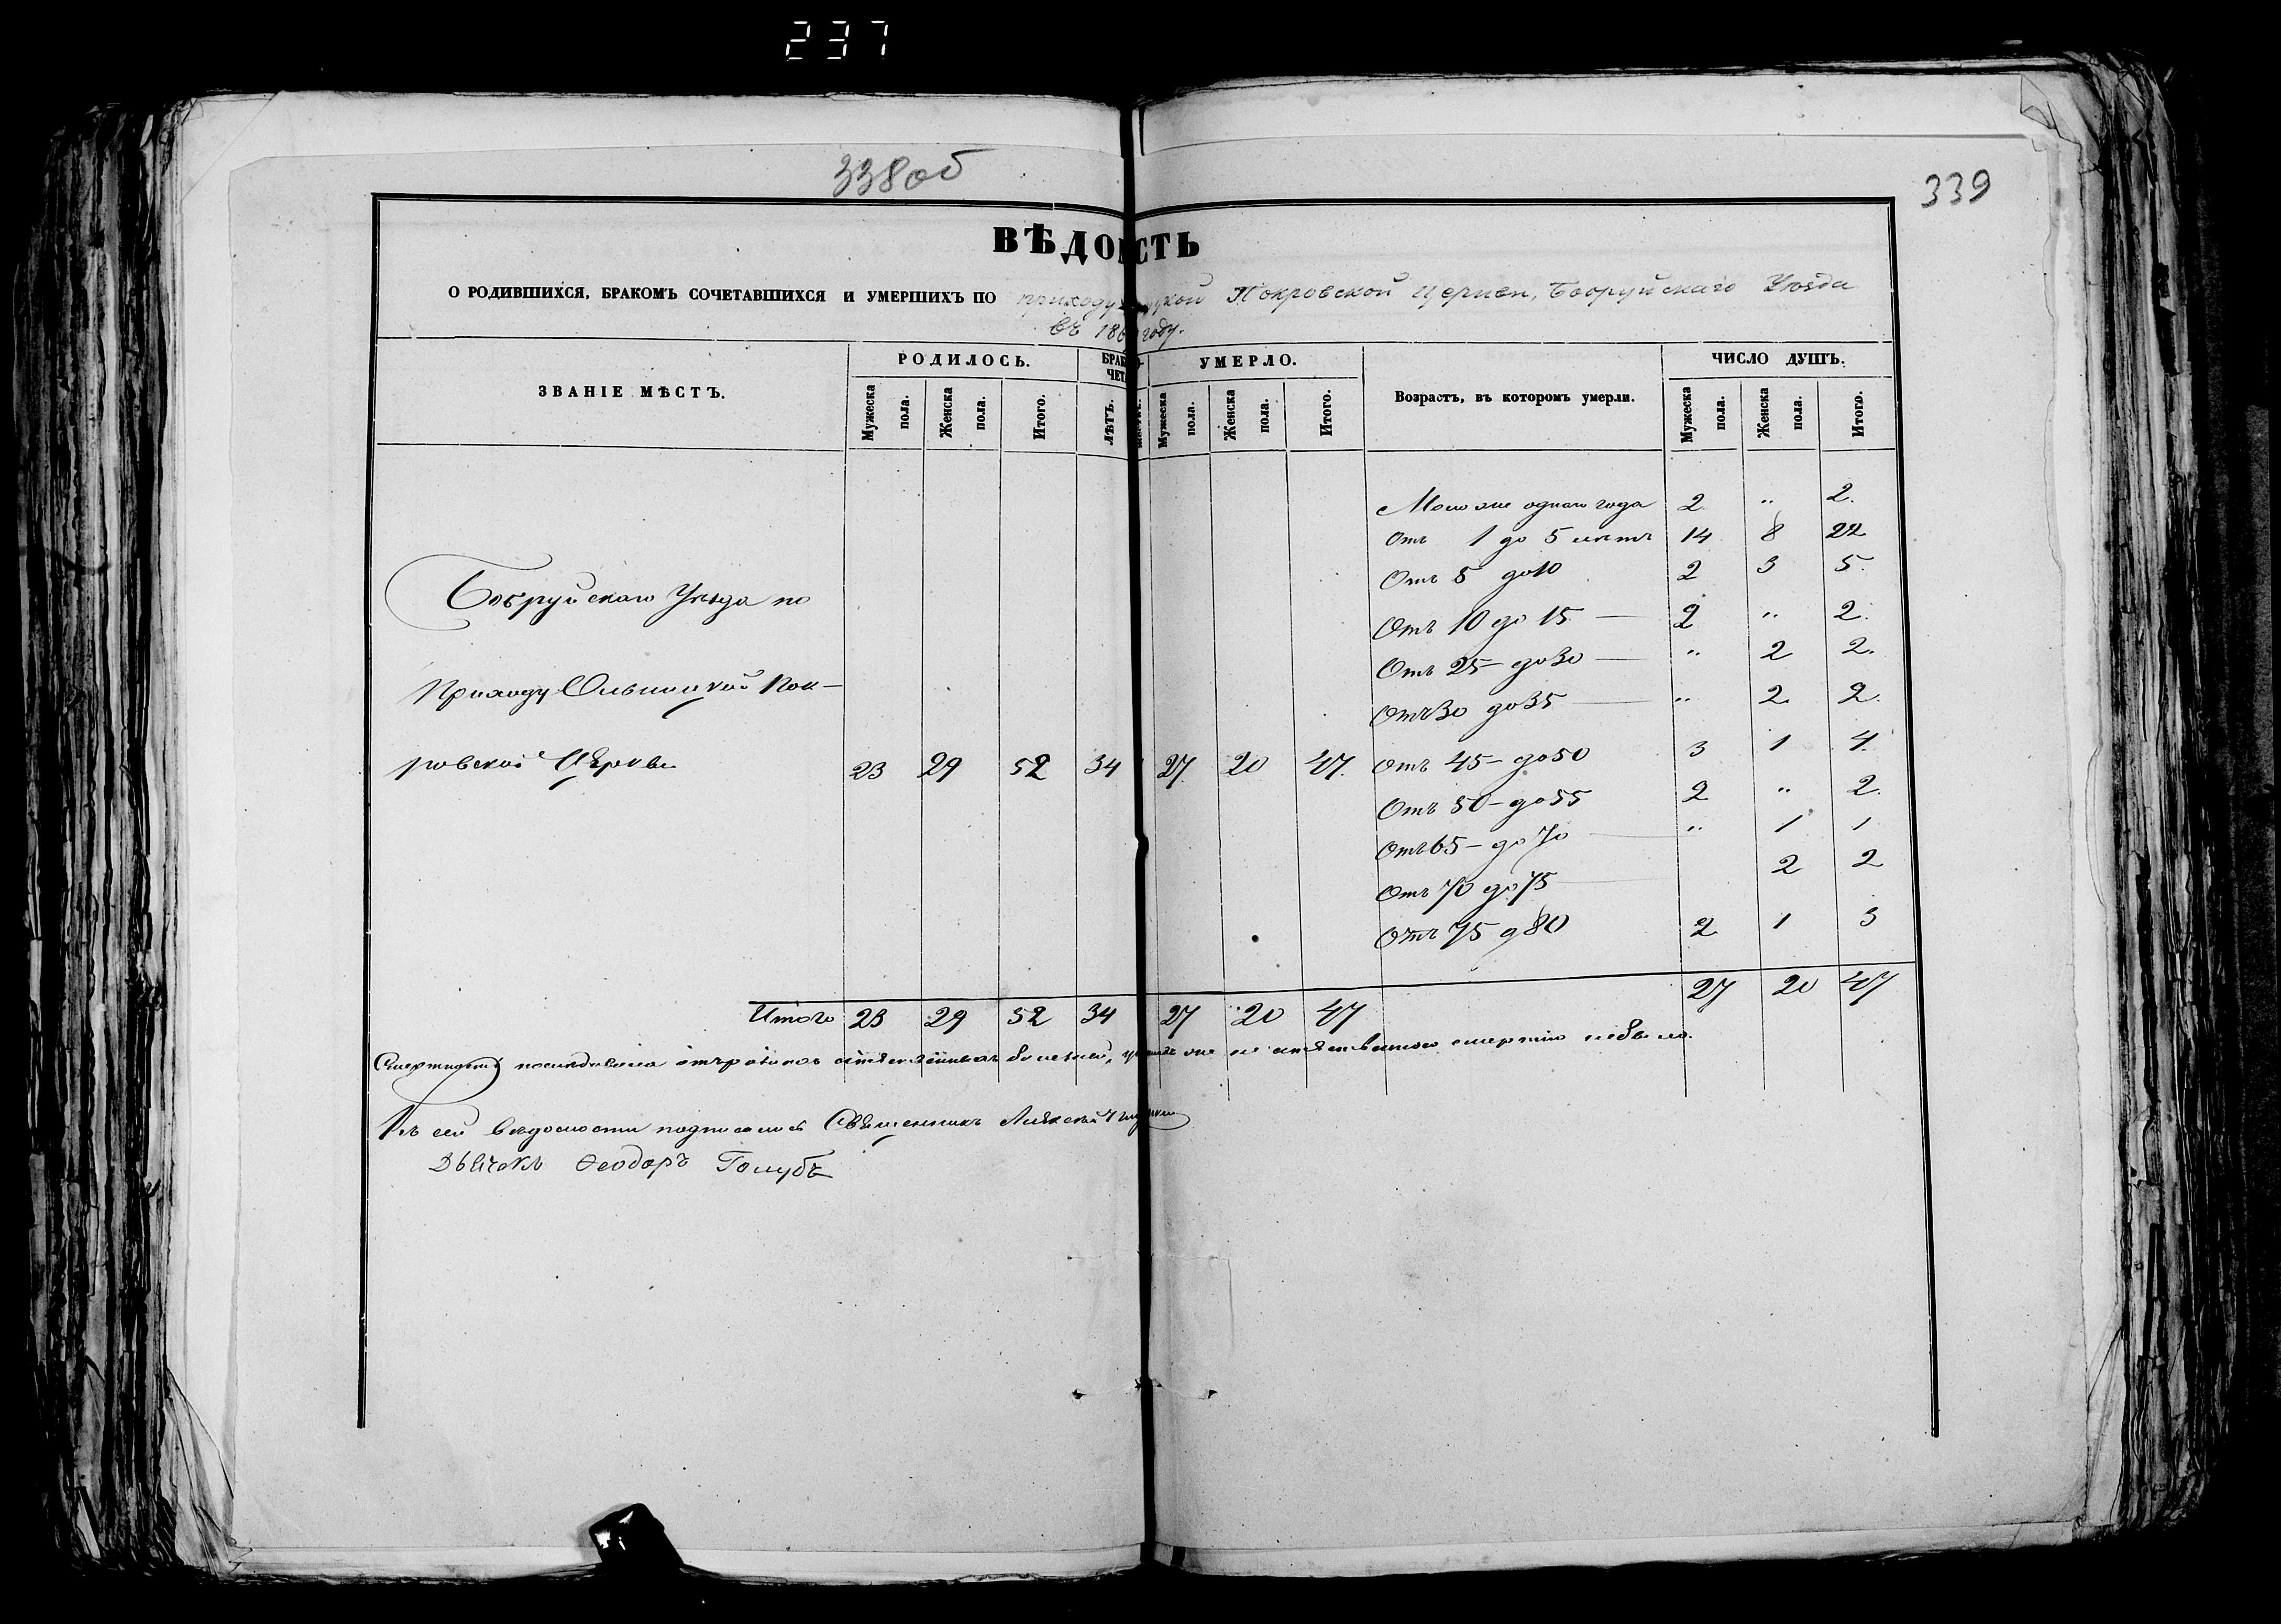 237
338 об
339
ВѢДОМОСТЬ
О РОДИВШИХСЯ, БРАКОМЪ СОЧЕТАВШИХСЯ И УМЕРШИХЪ ПО приходу Покровской Церкви, Бобруйскаго Уѣзда
въ году.
ЗВАНІЕ МѢСТЪ.
РОДИЛОСЬ.
УМЕРЛО.
Возрастъ, въ которомъ умерли.
ЧИСЛО ДУШЪ.
Мужеска пола. Женска пола. Итого. Мужеска пола. Женска пола. Итого. Мужеска пола. Женска пола. Итого.
Моложе одного года 2 " 2.
Отъ 1 до 5 лѣтъ 14 8 22
Отъ 5 до 10 2 3 5.
Бобруйскаго Уѣзда по
Отъ 10 до 15 — 2 " 2.
Отъ 25 – до 30 — " 2 2.
Приходу Пок-
Отъ 30 до 35 — " 2 2.
ровской Церкви 23 29 52 34 27. 20 47. Отъ 45 – до 50 3 1 4.
Отъ 50 – до 55 2 " 2.
Отъ 65 – до 70 — " 1 1
Отъ 70 до 75 — 2 2
Отъ 75 д 80 2 1 3
27 20 47
Итого 23 29 52 34 27 20 47
болѣзней, же смертію небыло.
Къ сей вѣдомости подписался Священникъ
Дьячекъ Ѳеодоръ Голубъ